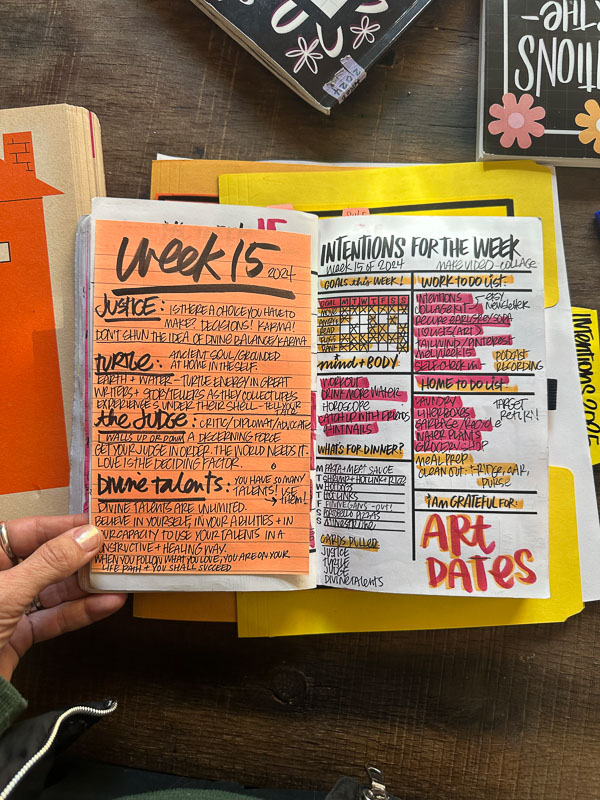 Week 15 2024
JUSTICE: IS THERE A CHOICE YOU HAVE TO
MAKE? DECISIONS! KARMA!
DON'T SHUN THE IDEA OF DIVINE BALANCE/KARMA
turtle: ANCIENT SOUL/GROUNDED
AT HOME IN THE SELF.
EARTH + WATER - TURTLE ENERGY IN GREAT
WRITERS + STORYTELLERS AS THEY COLLECT LIFES
EXPERIENCES UNDER THEIR SHELL - TELL YOUR
the JUDGE: CRITIC/DIPLOMAT/ADVOCATE
WALLS UP OR DOWN A DISCERNING FORCE
GET YOUR JUDGE IN ORDER. THE WORLD NEEDS IT.
LOVE IS THE DECIDING FACTOR.
Divine talents: YOU HAVE SO MANY
TALENTS! USE
them!
DIVINE TALENTS ARE UNLIMITED.
BELIEVE IN YOURSELF, IN YOUR ABILITIES + IN
YOUR CAPACITY TO USE YOUR TALENTS IN A
CONSTRUCTIVE + HEALING WAY.
WHEN YOU FOLLOW WHAT YOU LOVE, YOU ARE ON YOUR
LIFE PATH + YOU SHALL SUCCEED
15
INTENTIONS FOR THE WEEK
Week 15 of 2024
MAKE VIDEO - COLLAGE
GOALS this Week!
M T W T F S S
mind + BODY
WORKOUT
DRINK MORE WATER
HOROSCOPE
CATCH UP WITH FRIENDS
PAINT NAILS
WHAT'S FOR DINNER?
M PASTA + MEAT SAUCE
T SHRIMP + HOTLINK + RICE
W
T HOTLINKS
F
S
S
CARDS PULLED
JUSTICE
TURTLE
JUDGE
DIVINE TALENTS
WORK TO DO LIST:
INTENTIONS
EASY
Newsletter
COLLAGE KIT
TAILWIND/PINTEREST
MEL WEEK 15
SELF CHECK IN
PODCAST
RECORDING
HOME TO DO LIST:
LAUNDRY
GARBAGE/Recycle
WATER PLANTS
GROCERY SHOP
TARGET
Return!!
MEAL PREP
CLEAN OUT: FRIDGE, CAR,
PURSE
I am GRATEFUL FOR:
ART
DATES
2024
INTENTIONS
THE-
INTENTIONS 2025